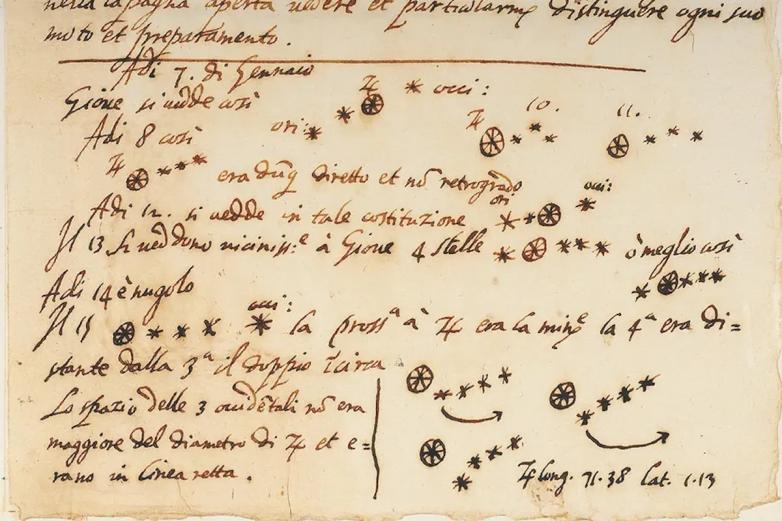 nella campagna aperta vedere et particularmᵉ distinguere ogni suo
moto et preparamento.
Adi 7. di Gennaio
Gioue si uedde così ♃ occi:
ori:
Adi 8 così ♃ 10. 11.
♃ era dũq̃ diretto et nõ retrogrado
Adi 12. si uedde in tale costituzione ori occi:
Il 13 si ueddono uiciniss:ᵉ à Gioue 4 stelle ò meglio così
Adi 14 è nugolo
Il 15 occi: la prossᵃ à ♃ era la minᵉ la 4ᵃ era di=
stante dalla 3ᵃ il doppio circa
Lo spazio delle 3 ouidẽtali nõ era
maggiore del diametro di ♃ et e=
rano in linea retta.
♃ long. 71.38 lat. 1.13